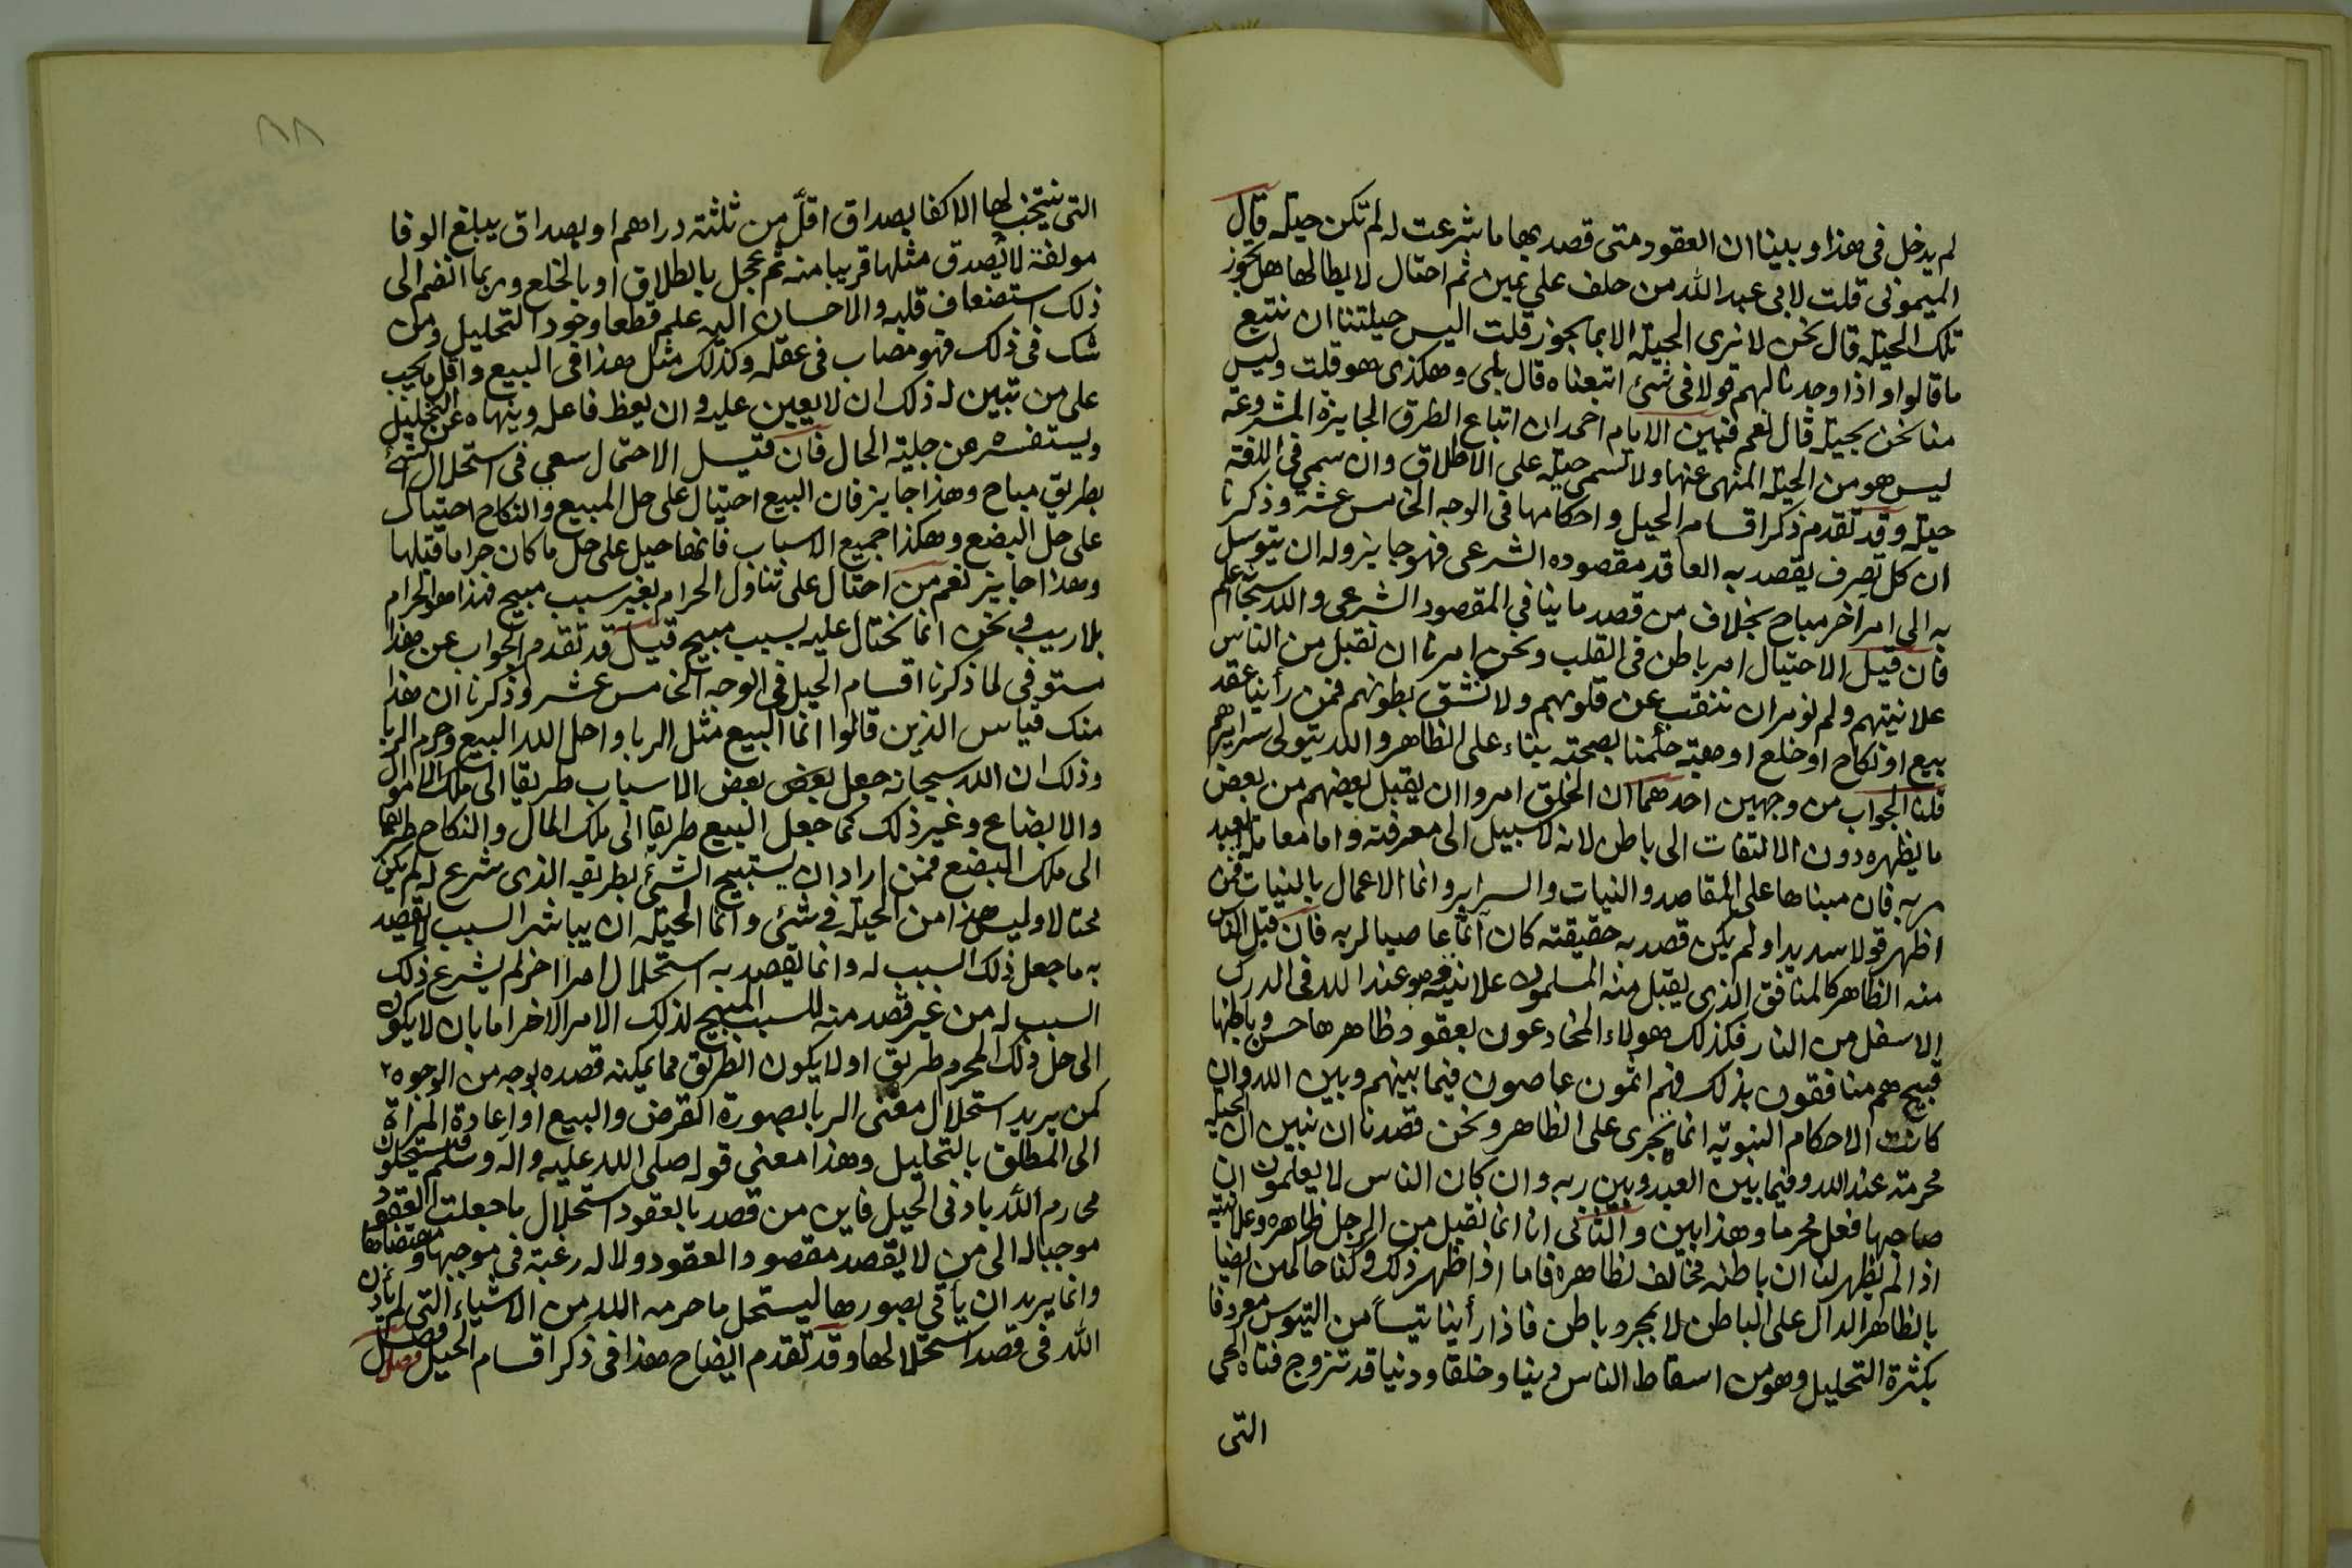 لم يدخل فى هذا وبينا ان العقود متى قصد بها ما شرعت له لم تكن حيلة قال
الميمونى قلت لابى عبد الله من حلف على يمين ثم احتال لابطالها هل يجوز
تلك الحيلة قال نحن لا نرى الحيلة الا بما يجوز قلت اليس حيلتنا ان نتبع
ما قالوا واذا وجدنا لهم قولا فى شئ اتبعناه قال بلى وهكذى هو قلت وليس
منا نحن بحيلة قال نعم فبين الامام احمد ان اتباع الطرق الجايزة المشروعة
ليس هو من الحيلة المنهى عنها ولا تسمى حيلة على الاطلاق وان سمى فى اللغة
حيلة وقد تقدم ذكر اقسام الحيل واحكامها فى الوجه الخامس عشر وذكرنا
ان كل تصرف يقصد به العاقد مقصوده الشرعى فهو جايز وله ان يتوسل
به الى امر اخر مباح بخلاف من قصد ما ينافي المقصود الشرعى والله سبحانه اعلم
فان قيل الاحتيال امر باطن فى القلب ونحن امرنا ان نقبل من الناس
علانيتهم ولم نومر ان ننقب عن قلوبهم ولا نشق بطونهم فمن رأينا عقد
بيع او نكاح او خلع او هبة حكمنا بصحته بناء على الظاهر والله يتولى سرايرهم
قلنا الجواب من وجهين احدهما ان الخلق امروا ان يقبل بعضهم من بعض
ما يظهره دون الالتفات الى باطن لانه لا سبيل الى معرفته واما معاملة العبد
مربه فان مبناها على المقاصد والنيات والسراير وانما الاعمال بالنيات فمن
اظهر قولا سديدا ولم يكن قصد به حقيقته كان آثما عاصيا لربه فان قبل الناس
منه الظاهر كالمنافق الذى يقبل منه المسلمون علانيته وهو عند الله فى الدرك
الاسفل من النار فكذلك هولاء المخادعون بعقود ظاهرها حسن وباطنها
قبيح هم منافقون بذلك فهم اثمون عاصون فيما بينهم وبين الله وان
كانت الاحكام النبوية انما تجرى على الظاهر ونحن قصدنا ان نبين ان الحيلة
محرمة عند الله وفيما بين العبد وبين ربه وان كان الناس لا يعلمون ان
صاحبها فعل محرما وهذا بين والثانى انا انما نقبل من الرجل ظاهره وعلانيته
اذا لم يظهر لنا ان باطنه مخالف لظاهره فاما اذا ظهر ذلك وكنا حاكمين ايضا
بالظاهر الدال على الباطن لا بمجرد باطن فاذا رأينا تيسا من التيوس معروفا
بكثرة التحليل وهو من اسقاط الناس دينا وخلقا ودنيا قد تزوج فتاة الحى
التى
٨٨
التى ينتخب لها الاكفا بصداق اقل من ثلثة دراهم او بصداق يبلغ الوفا
مولفة لا يُصدق مثلها قريبا منه ثم عجل بالطلاق او بالخلع وربما انضم الى
ذلك استضعاف قلبه والاحسان اليه علم قطعا وجود التحليل ومن
شك فى ذلك فهو مصاب فى عقله وكذلك مثل هذا فى البيع واقل ما يجب
على من تبين له ذلك ان لا يعين عليه وان يعظ فاعله وينهاه عن التحليل
ويستفسره عن جلية الحال فان قيل الاحتمال سعي فى استحلال الشئ
بطريق مباح وهذا جايز فان البيع احتيال على حل المبيع والنكاح احتيال
على حل البضع وهكذا جميع الاسباب فانها حيل على حل ما كان حراما قبلها
وهذا جايز نعم من احتال على تناول الحرام بغير سبب مبيح فهذا هو الحرام
بلا ريب ونحن انما نحتال عليه بسبب مبيح قيل قد تقدم الجواب عن هذا
مستوفى لما ذكرنا اقسام الحيل فى الوجه الخامس عشر وذكرنا ان هذا
منك قياس الذين قالوا انما البيع مثل الربا واحل الله البيع وحرم الربا
وذلك ان الله سبحانه جعل بعض بعض الاسباب طريقا الى ملك الاموال
والابضاع وغير ذلك كما جعل البيع طريقا الى ملك المال والنكاح طريقا
الى ملك البضع فمن اراد ان يستبيح الشئ بطريقه الذى شرع له لم يكن
محتالا وليس هذا من الحيلة فى شئ وانما الحيلة ان يباشر السبب لا يقصد
به ما جعل ذلك السبب له وانما يقصد به استحلال امرا اخر لم يشرع ذلك
السبب له من غير قصد منه للسبب المبيح لذلك الامر الاخر اما بان لا يكون
الى حل ذلك المحرم طريق او لا يكون الطريق مما يمكنه قصده بوجه من الوجوه
كمن يريد استحلال معنى الربا بصورة القرض والبيع او اعادة المراة
الى المطلق بالتحليل وهذا معنى قوله صلى الله عليه واله وسلم فتستحلون
محارم الله بادنى الحيل فاين من قصد بالعقود استحلال ما جعلت العقود
موجبا له الى من لا يقصد مقصود العقود ولا له رغبة فى موجبها ومقتضاها
وانما يريد ان يأتى بصورها ليستحل ما حرمه الله من الاشياء التى لم يأذن
الله فى قصد استحلالها وقد تقدم ايضاح هذا فى ذكر اقسام الحيل فصل